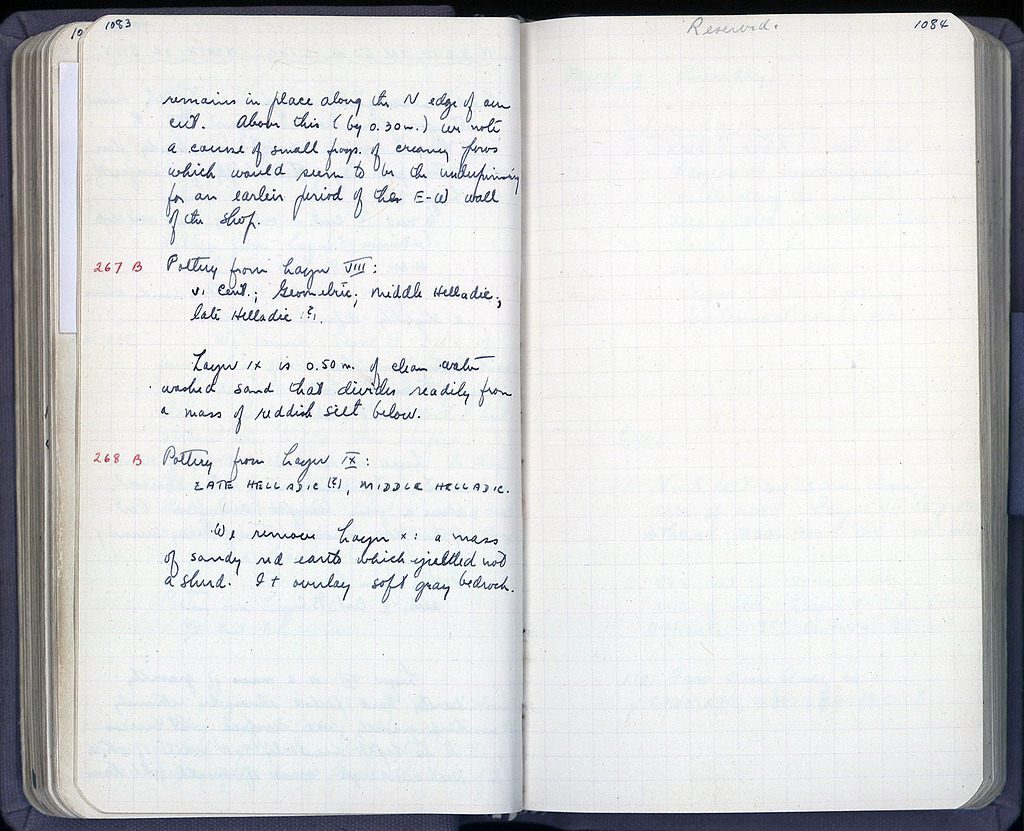 1083
remains in place along the N edge of our
cut. Above this (by 0.30 m.) we note
a course of small frags. of creamy poros
which would seem to be the underpinning
for an earlier period of the E-W wall
of the shop.
267 B Pottery from Layer VIII:
v. Cent.; Geometric; Middle Helladic;
late Helladic (?).
Layer IX is 0.50 m. of clean water
washed sand that divides readily from
a mass of reddish silt below.
268 B Pottery from Layer IX:
LATE HELLADIC (?), MIDDLE HELLADIC.
We remove Layer X: a mass
of sandy red earth which yielded not
a sherd. It overlay soft gray bedrock.
Reserved.
1084